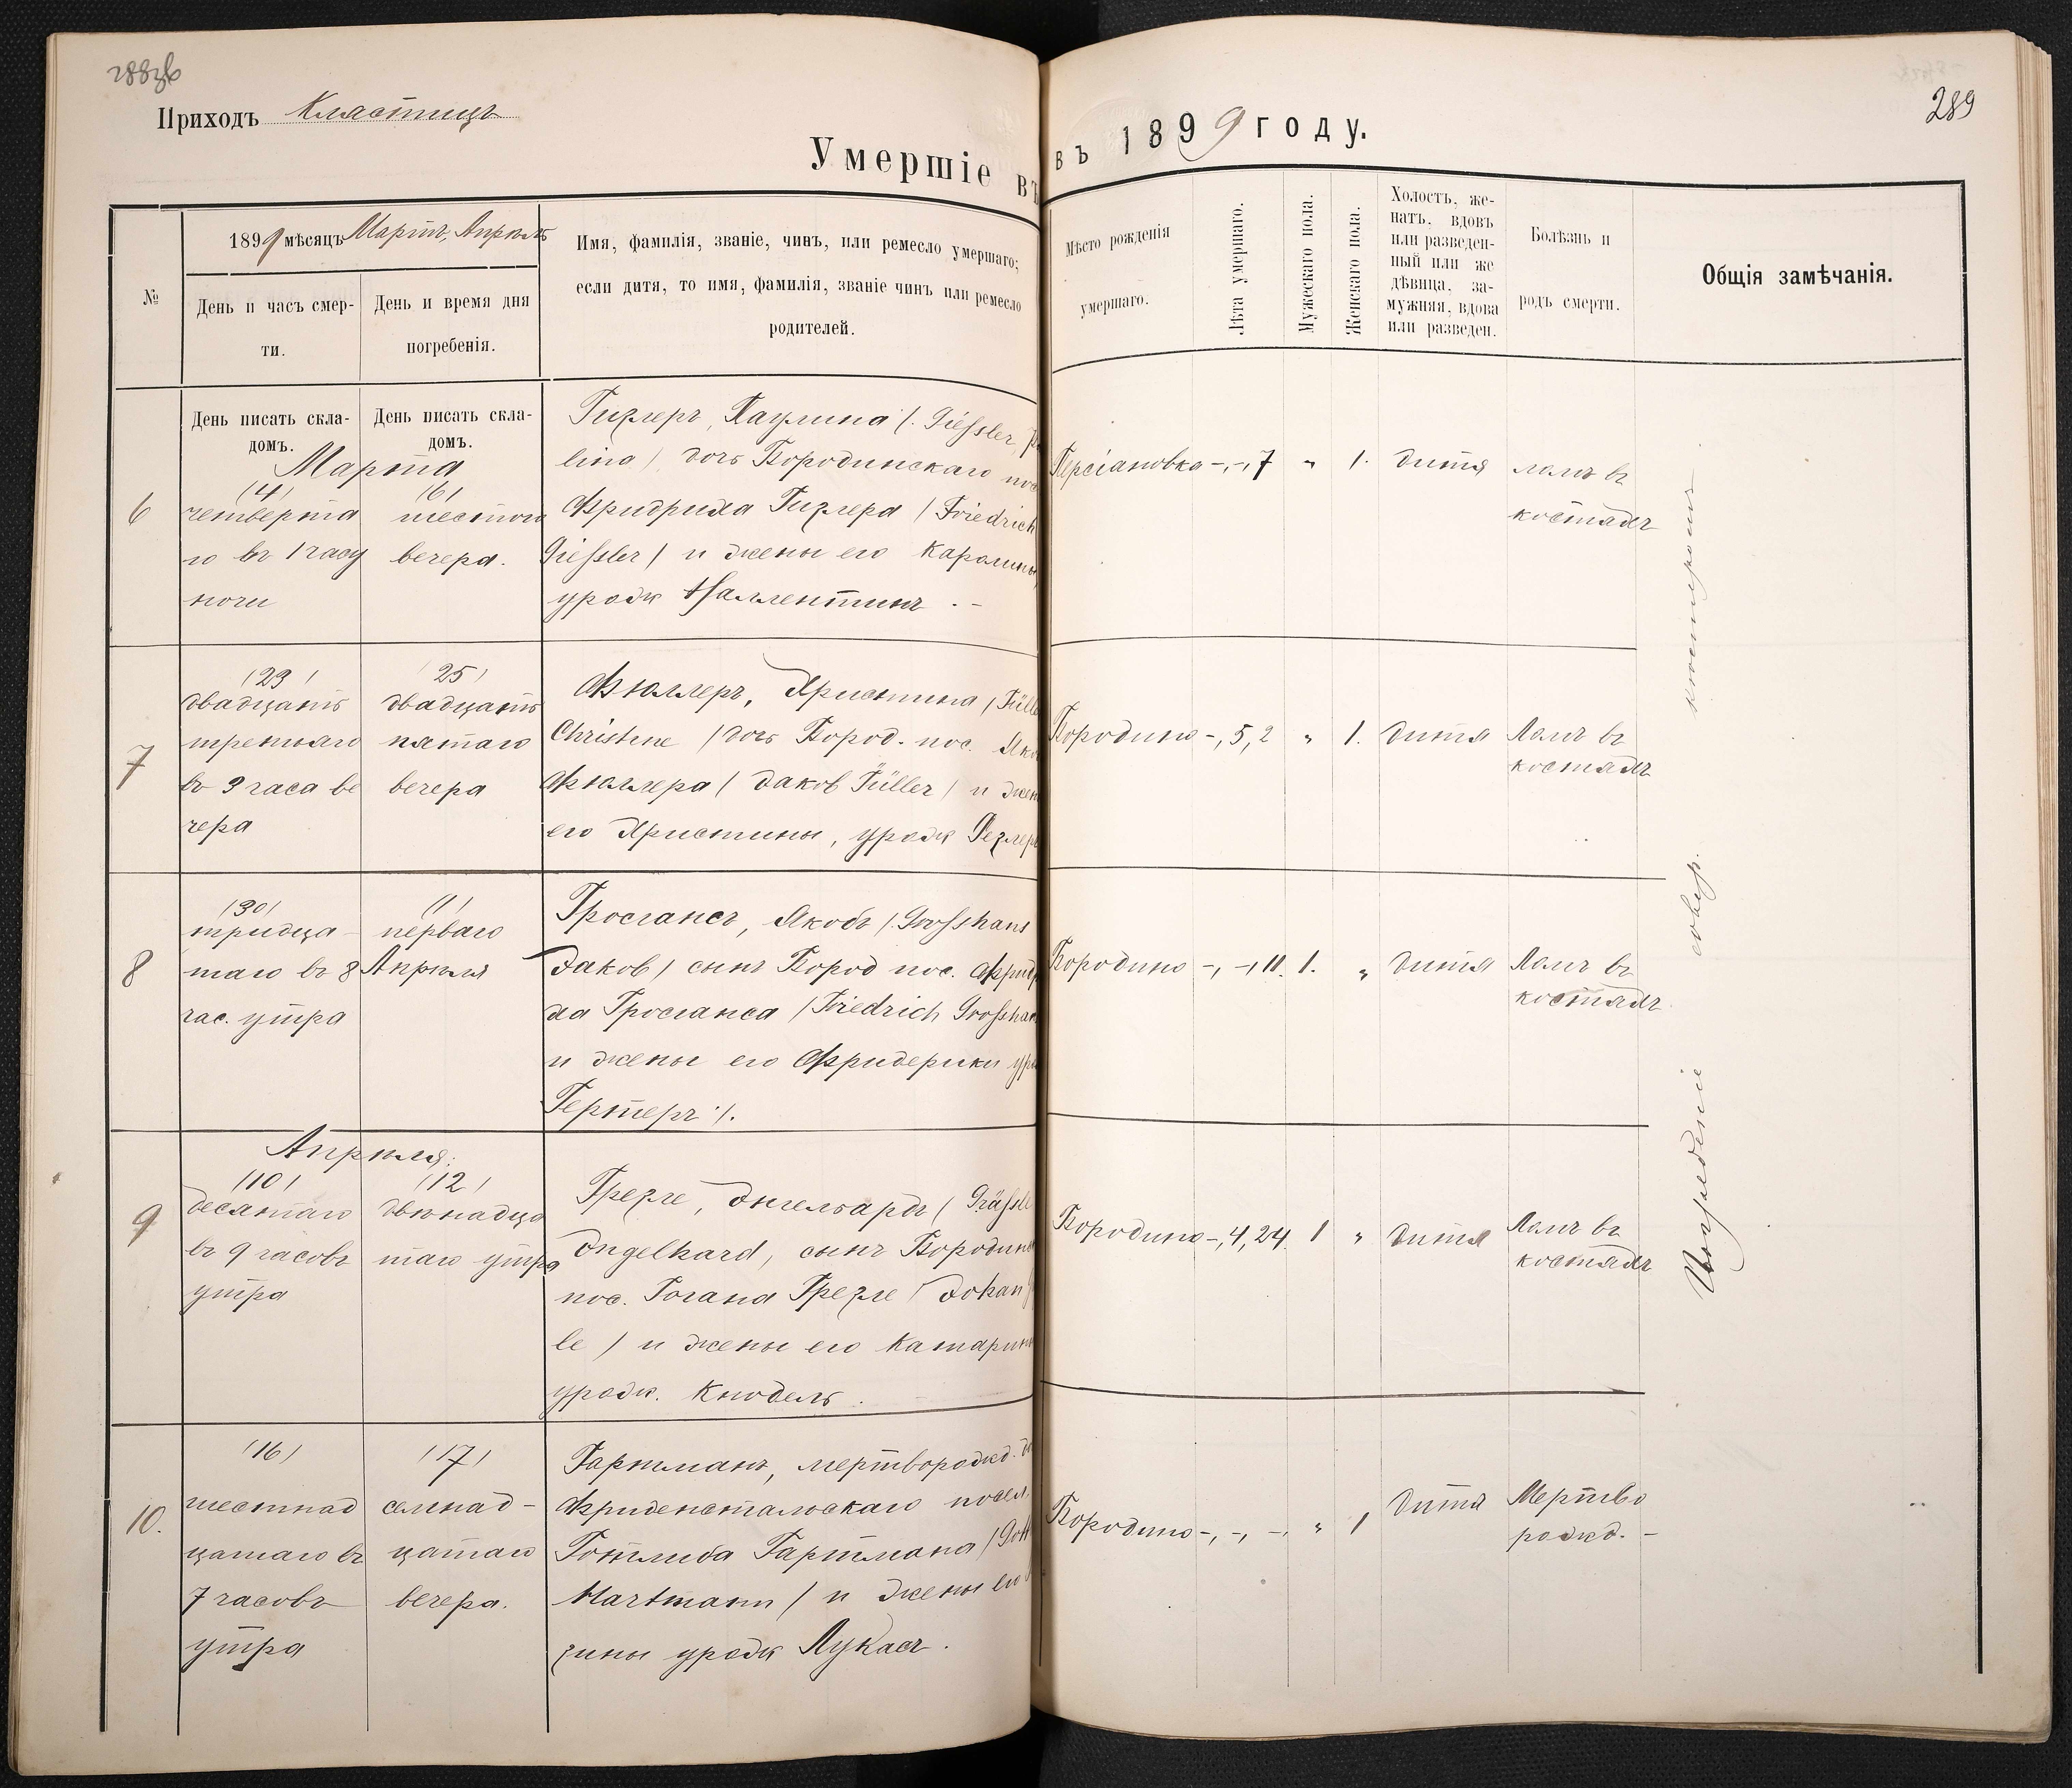 288об
Приходъ Кластицъ
Умершіе въ
въ 1899 году.
289
№
1899 мѣсяцъ Мартъ, Апрѣль
День и часъ смер-
ти.
День и время дня
погребенія.
Имя, фамилія, званіе, чинъ, или ремесло умершаго;
если дитя, то имя, фамилія, званіе чинъ или ремесло
родителей.
Мѣсто рожденія
умершаго.
Лѣта умершаго.
Мужескаго пола.
Женскаго пола.
Холостъ, же-
натъ, вдовъ
или разведен-
ный или же
дѣвица, за-
мужняя, вдова
или разведен.
Болѣзнь и
родъ смерти.
Общія замѣчанія.
День писать скла-
домъ.
День писать скла-
домъ.
Марта
6
/4/
четверта
го въ 1 часу
ночи
/6/
шестого
вечера.
Гизлеръ, Паулина /. Giessler, Pa
lina / дочь Бородинскаго пос
Фридриха Гизлера / Friedrich
Giessler / и жены его Каролины
урожд Валлентинъ . –
Персіановка –, –, 7 „ 1. дитя ломъ въ
костяхъ
7
/23/
двадцать
третьяго
въ 9 часа ве
чера
/25/
двадцать
пятаго
вечера
Фюллеръ, Христина / Fülle
Christine / дочь Бород. пос. Яко
Фюллера / Jakob Füller / и жен
его Христины, урожд Гезлеръ
Бородино –, 5, 2 „ 1. дитя Ломъ въ
костяхъ
8
/30/
тридца-
таго въ 8
час. утра
/1/
перваго
Апрѣля
Гросгансъ, Якобъ / Grosshans
Jakob / сынъ Бород пос. Фридр
ха Гросганса / Friedrich Grosshan
и жены его Фридерики ур
Гертеръ /.
Бородино –, –, 11. 1. „ дитя Ломъ въ
костяхъ
Апрѣля:
9
/10/
десятаго
въ 9 часовъ
утра
/12/
двѣнадца
таго утра
Грезле, Энгельгардъ / Grässle
Engelhard, сынъ Бородинс
пос. Іогана Грезле / Johan
le / и жены его Катарины
урожд. Кнодель .
Бородино –, 4, 24. 1 „ дитя Ломъ въ
костяхъ
10.
/16/
шестнад
цатаго въ
7 часовъ
утра
/17/
семнад-
цатаго
вечера.
Гартманъ, мертворожд.
Фриденстальскаго посел.
Готлиба Гартмана / Gott
Hartmann / и жены его
зины урожд Лукасъ .
Бородино –, –, –, „ 1 дитя Мертво
рожд. –
Погребеніе совер. кистеромъ